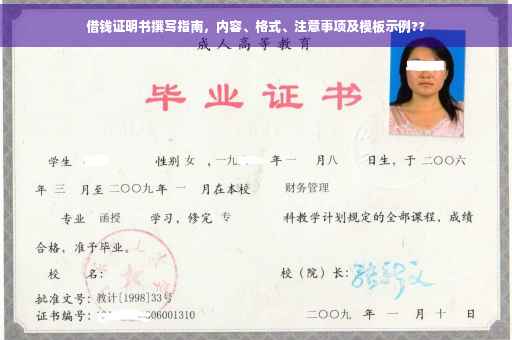 借钱证明书撰写指南，内容、格式、注意事项及模板示例??
成人高等教育
毕业证书
学生 性别 女 ，一九 年 一 月 八 日生，于 二〇〇六
年 三 月至 二〇〇九 年 一 月在本校 财务管理
专业 函授 学习，修完 专 科教学计划规定的全部课程，成绩
合格，准予毕业。
校 名： 校（院）长：
批准文号：教计[1998]33号
证书编号： 006001310 二〇〇九 年 一 月 十 日